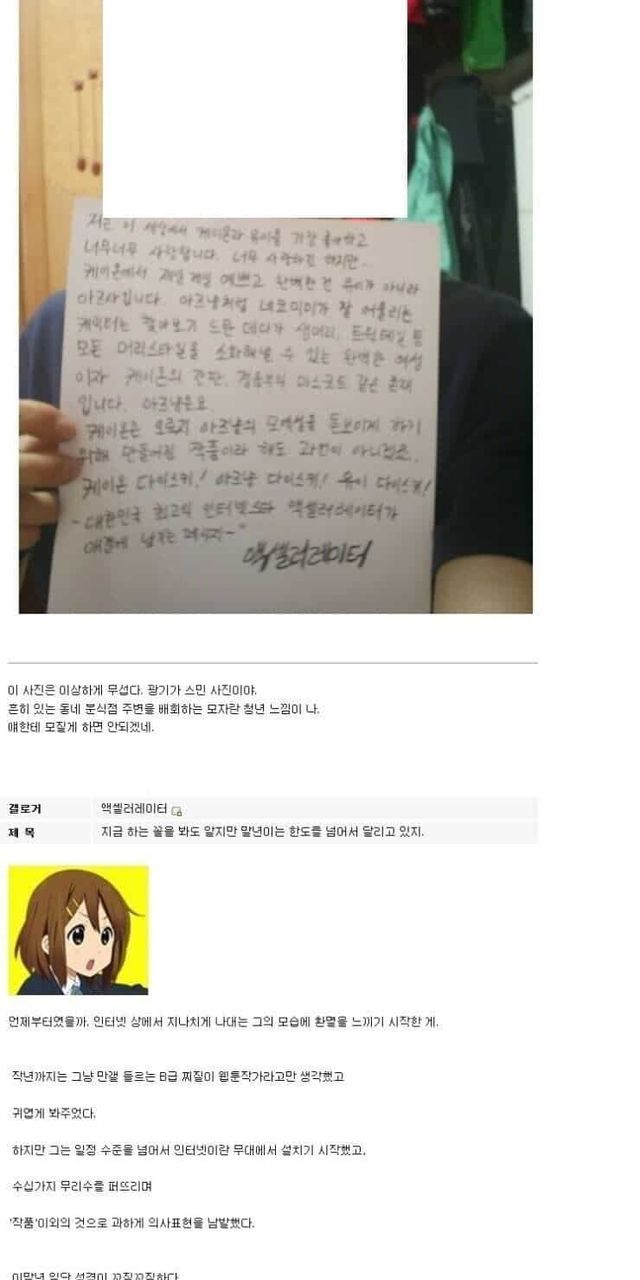 저는 이 세상에서 케이온과 유이를 가장 좋아하고
너무너무 사랑합니다. 너무 사랑하긴 하지만...
케이온에서 제일제일 예쁘고 완벽한 건 유이가 아니라
아즈사입니다. 아즈냥처럼 네코미미가 잘 어울리는
캐릭터는 찾아보기 드문 데다가 생머리, 트윈테일 등
모든 머리스타일을 소화해낼 수 있는 완벽한 여성
이자 케이온의 간판, 경음부의 마스코트 같은 존재
입니다. 아즈냥은요.
케이온은 오로지 아즈냥의 모에함을 돋보이게 하기
위해 만들어진 작품이라 해도 과언이 아니겠죠.
케이온 다이스키! 아즈냥 다이스키! 유이 다이스키!
-대한민국 최고의 인터넷스타 액셀러레이터가
남기는 메시지-
액셀러레이터
이 사진은 이상하게 무섭다. 광기가 스민 사진이야.
흔히 있는 동네 분식점 주변을 배회하는 모자란 청년 느낌이 나.
얘한테 모질게 하면 안되겠네.
갤로거 액셀러레이터
제 목 지금 하는 꼴을 봐도 알지만 말년이는 한도를 넘어서 달리고 있지.
언제부터였을까. 인터넷 상에서 지나치게 나대는 그의 모습에 환멸을 느끼기 시작한 게.
작년까지는 그냥 만갤 들르는 B급 찌질이 웹툰작가라고만 생각했고
귀엽게 봐주었다.
하지만 그는 일정 수준을 넘어서 인터넷이란 무대에서 설치기 시작했고,
수십가지 무리수를 퍼뜨리며
'작품'이외의 것으로 과하게 의사표현을 남발했다.
이말년 일단 성격이 꼬질꼬질하다